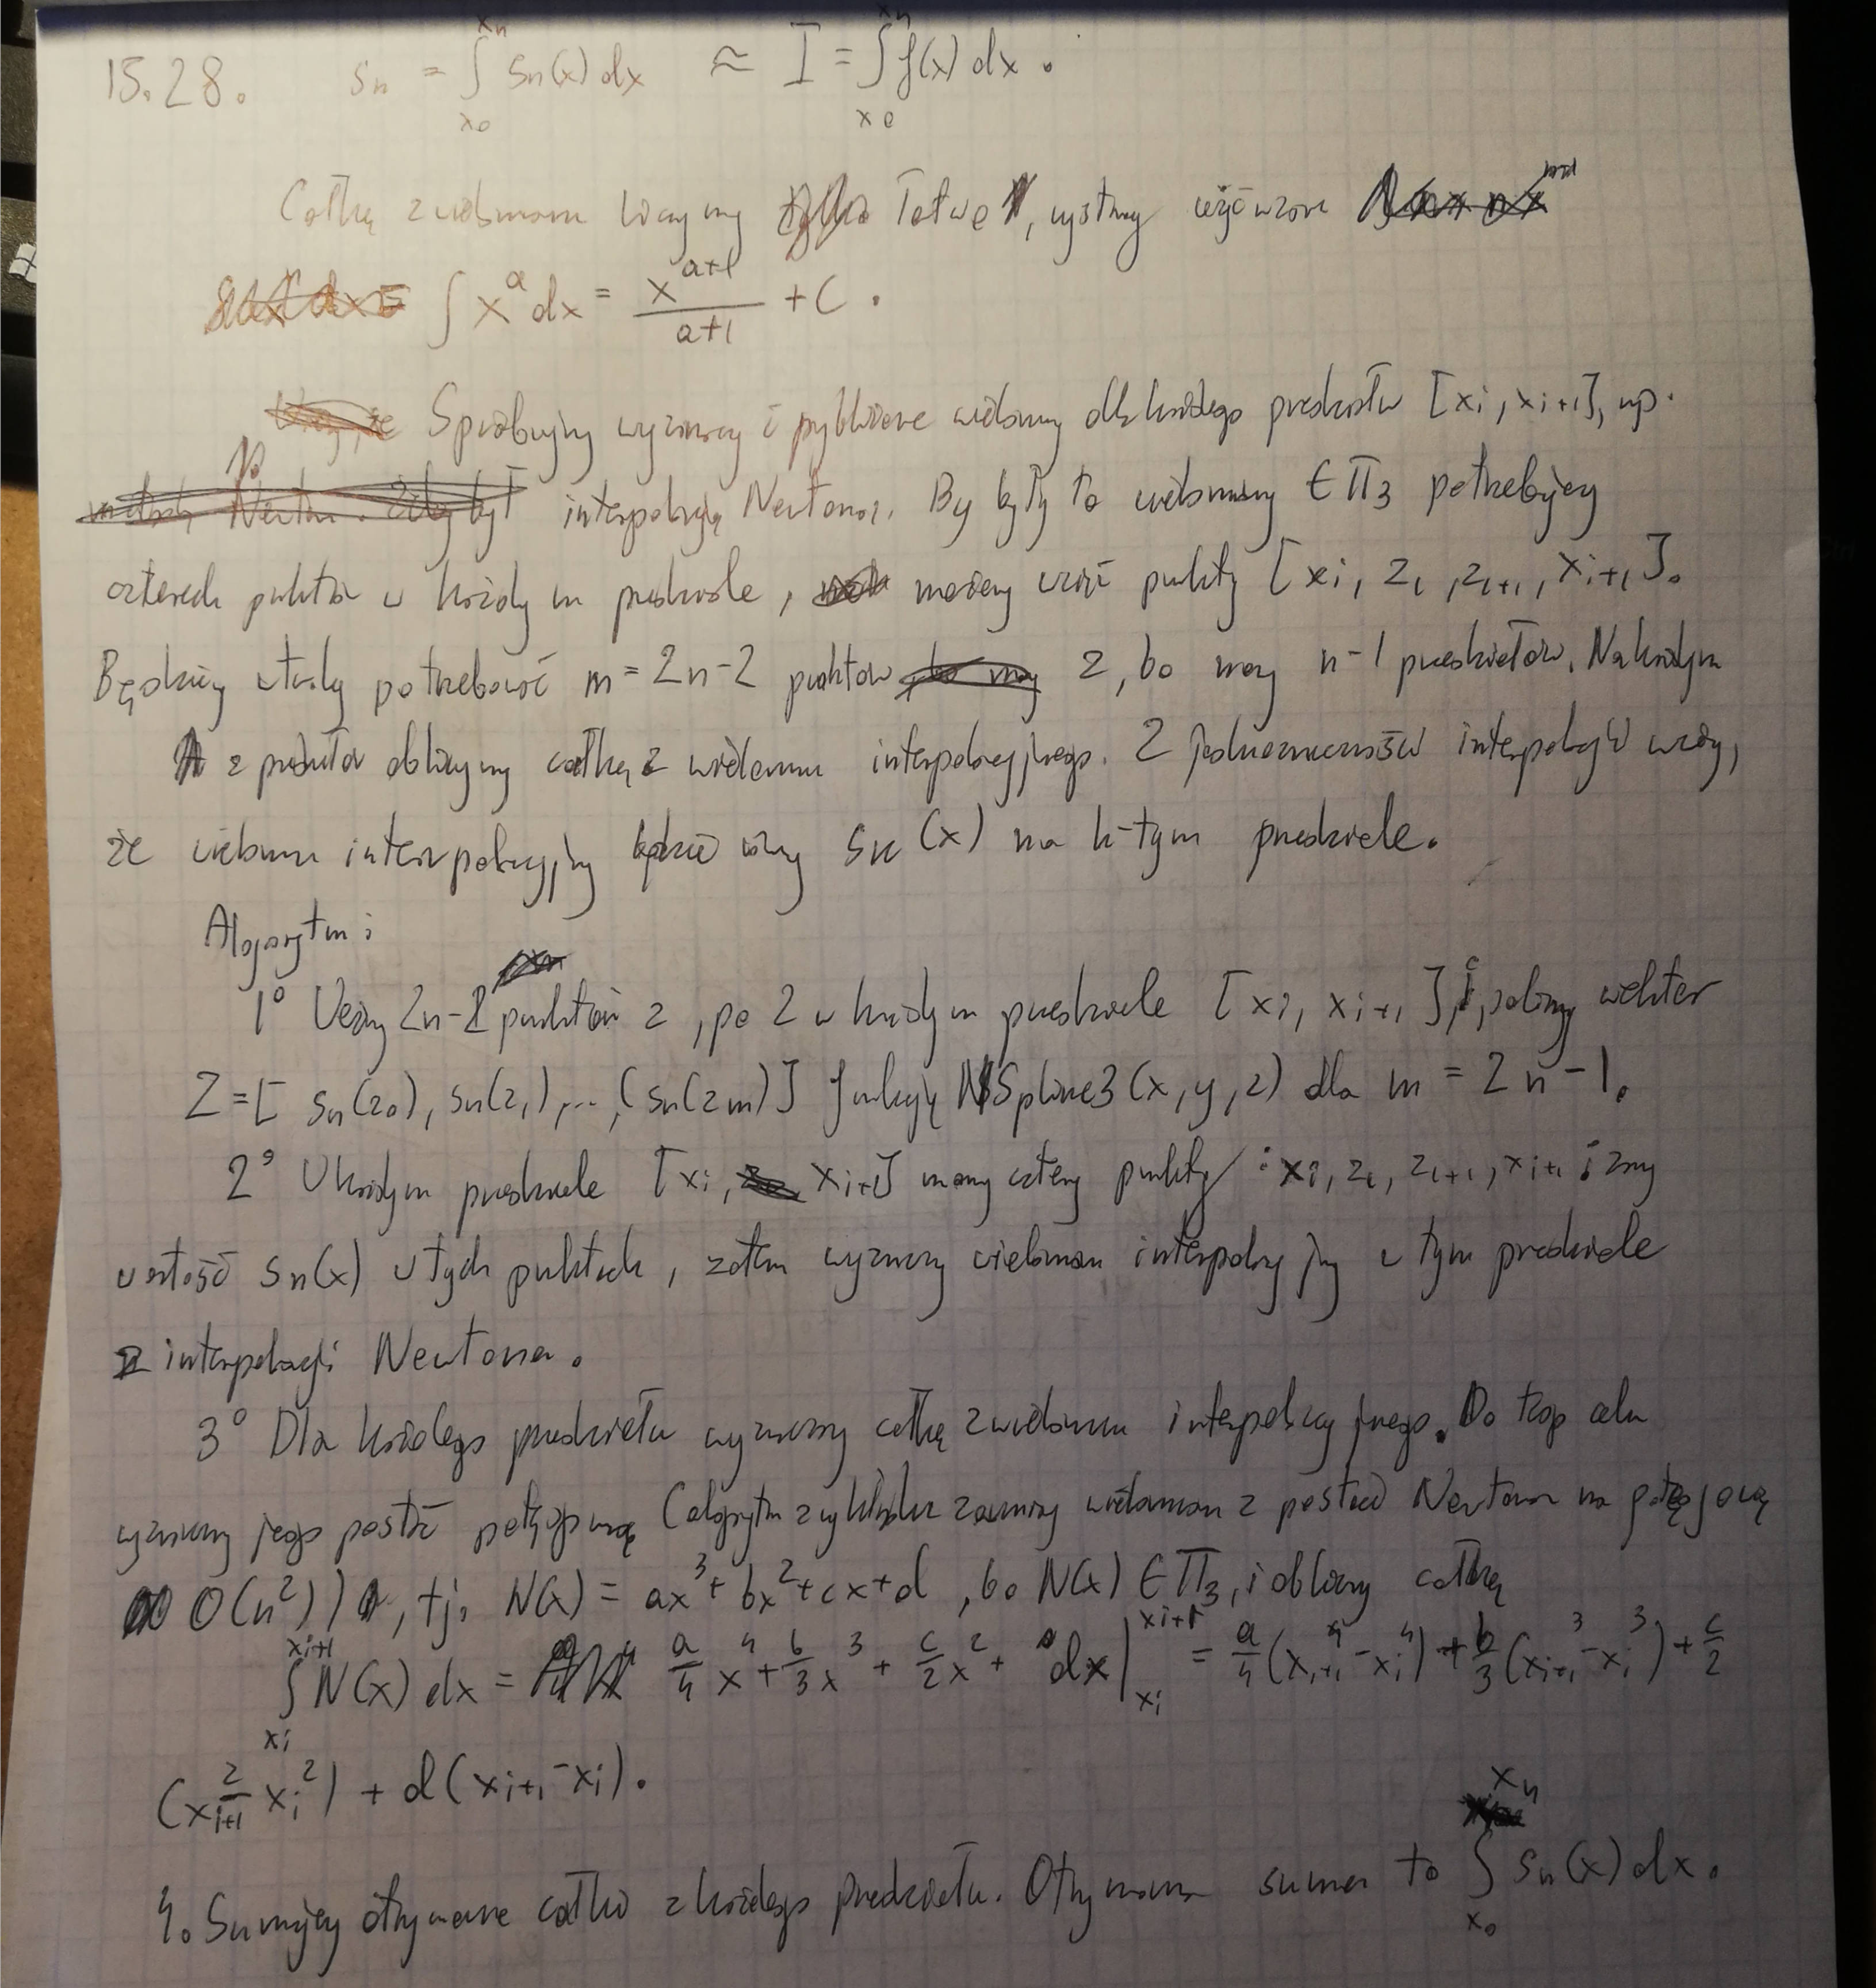 15.28. Sn = ∫_{x0}^{xn} Sn(x) dx ≈ I = ∫_{x0}^{xn} f(x) dx.
Całkę z wielomianu liczymy łatwo, użyć wzoru
∫ x^a dx = x^{a+1}/(a+1) + C.
Spróbujmy wyznaczyć wielomiany dla każdego przedziału [xi, xi+1], np.
interpolacją Newtona. By były to wielomiany ∈ Π3 potrzebujemy
czterech punktów w każdym przedziale, możemy wziąć punkty [xi, zi, zi+1, xi+1].
Będziemy wtedy potrzebować m = 2n-2 punktów z, bo mamy n-1 przedziałów. Na każdym
z przedziałów obliczymy całkę z wielomianu interpolacyjnego. Z jednoznaczności interpolacji wiemy,
że wielomian interpolacyjny będzie równy Sn(x) na k-tym przedziale.
Algorytm:
1° Weźmy 2n-2 punktów z, po 2 w każdym przedziale [xi, xi+1], i policzmy wektor
Z = [Sn(z0), Sn(z1), ..., (Sn(zm)] funkcją NSpline3(x, y, z) dla m = 2n-1.
2° W każdym przedziale [xi, xi+1] mamy cztery punkty: xi, zi, zi+1, xi+1 i znamy
wartość Sn(x) w tych punktach, zatem wyznaczmy wielomian interpolacyjny w tym przedziale
z interpolacji Newtona.
3° Dla każdego przedziału wyznaczmy całkę z wielomianu interpolacyjnego. Do tego celu
wyznaczmy jego postać potęgową (algorytm z wykładu zamiany wielomianu z postaci Newtona na potęgową
O(n²)), tj. N(x) = ax³ + bx² + cx + d, bo N(x) ∈ Π3, i obliczmy całkę
∫_{xi}^{xi+1} N(x) dx = a/4 x⁴ + b/3 x³ + c/2 x² + dx |_{xi}^{xi+1} = a/4 (xi+1⁴ - xi⁴) + b/3 (xi+1³ - xi³) + c/2
(xi+1² - xi²) + d(xi+1 - xi).
4. Sumujemy otrzymane całki z każdego przedziału. Otrzymana suma to ∫_{x0}^{xn} Sn(x) dx.